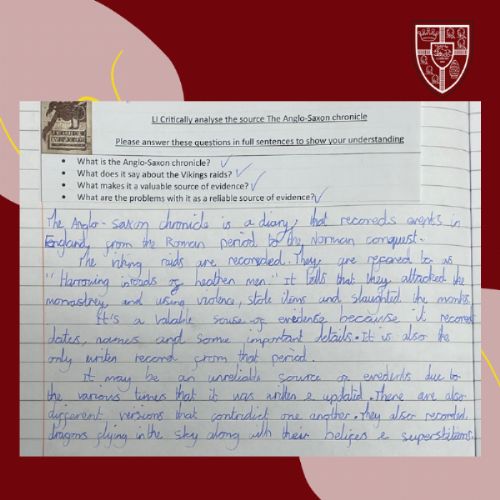 LI Critically analyse the source The Anglo-Saxon chronicle
Please answer these questions in full sentences to show your understanding
• What is the Anglo-Saxon chronicle?
• What does it say about the Vikings raids?
• What makes it a valuable source of evidence?
• What are the problems with it as a reliable source of evidence?
The Anglo-Saxon chronicle is a diary, that recoreds events in
England, from the Roman period to the Norman conquest.
The viking raids are recoreded. They are repared to as
"Harrowing inroads of heathen men." It tells that they attacked the
monastrey and using violence, stole items and slaughted the monks.
It's a valable souse of evidense because it recored
dates, names and some important details. It is also the
only writen record from that period.
It may be an unreliable source of evedents due to
the various times that it was writen & updated. There are also
different versions that contridict one another. They also recorded
dragons flying in the sky along with their beliefes & superstitions.